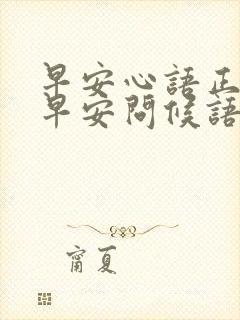 早安心語正
早安問候語
甯夏